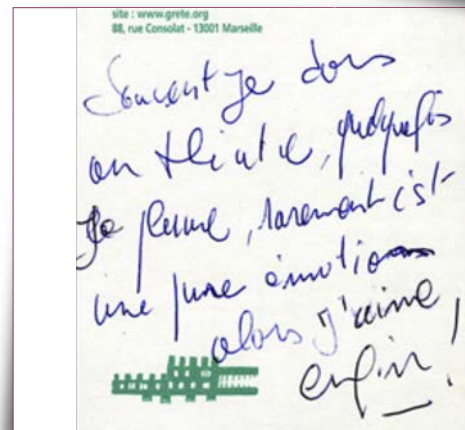 site : www.grete.org
88, rue Consolat - 13001 Marseille
Souvent je dors
au théâtre, quelquefois
Je pleure, rarement c'est
une pure émotion
alors j'aime
enfin !